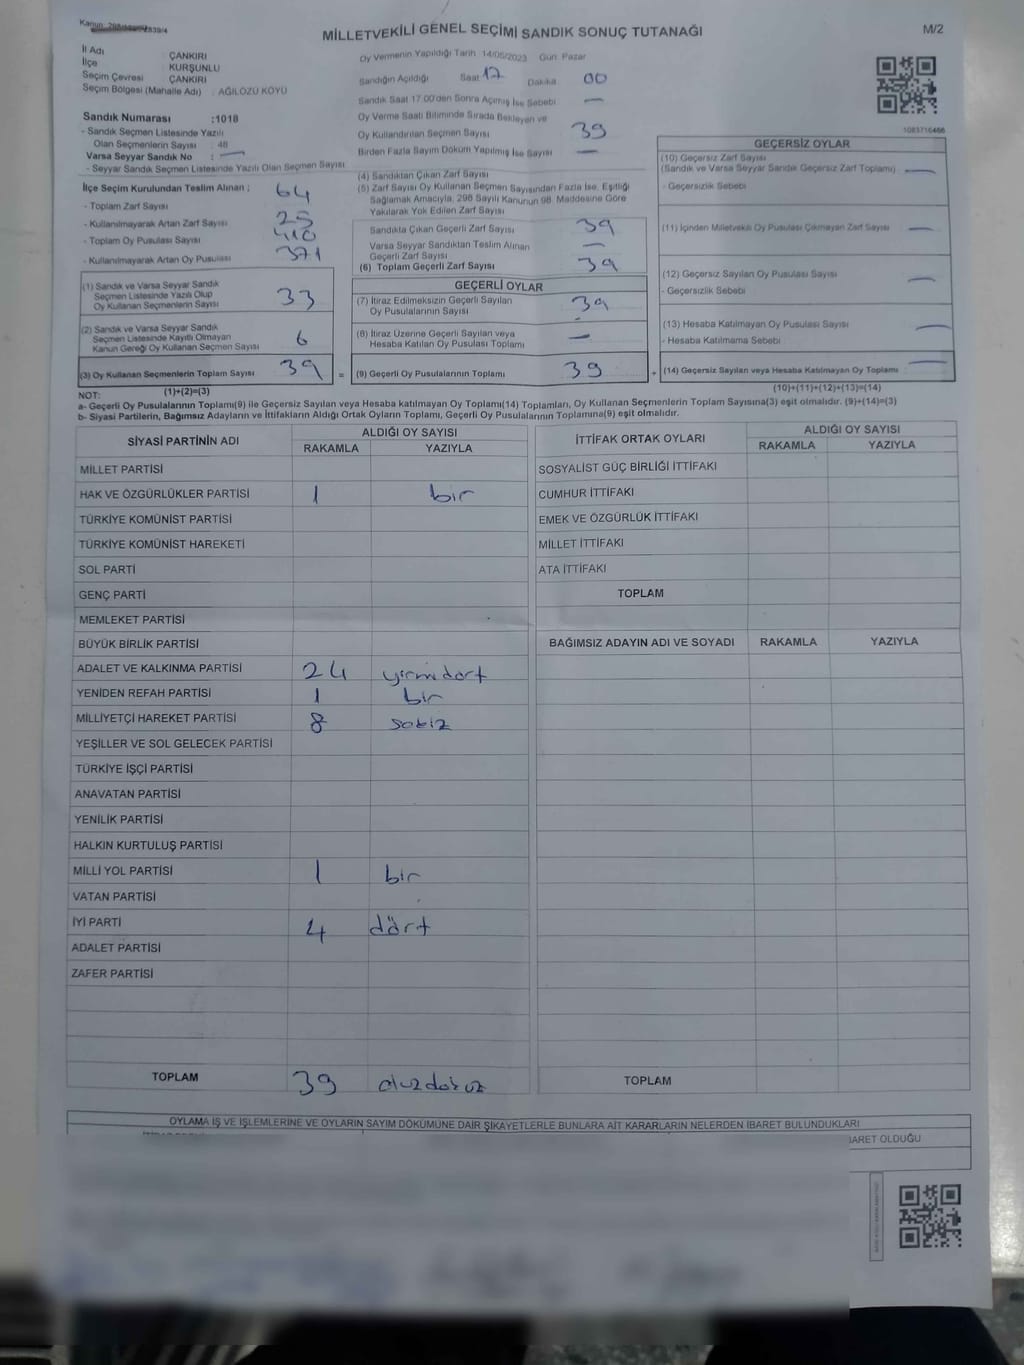 MİLLETVEKİLİ GENEL SEÇİMİ SANDIK SONUÇ TUTANAĞI
M/2
İl Adı : ÇANKIRI
İlçe : KURŞUNLU
Seçim Çevresi : ÇANKIRI
Seçim Bölgesi (Mahalle Adı) : AĞILÖZÜ KÖYÜ
Oy Vermenin Yapıldığı Tarih 14/05/2023 Gün: Pazar
Sandığın Açıldığı Saat 17 Dakika 00
Sandık Saat 17.00'den Sonra Açılmış İse Sebebi —
Oy Verme Saati Bitiminde Sırada Bekleyen ve
Oy Kullandırılan Seçmen Sayısı 39
Birden Fazla Sayım Döküm Yapılmış İse Sayısı —
Sandık Numarası :1018
- Sandık Seçmen Listesinde Yazılı
Olan Seçmenlerin Sayısı
Varsa Seyyar Sandık No : —
- Seyyar Sandık Seçmen Listesinde Yazılı Olan Seçmen Sayısı
İlçe Seçim Kurulundan Teslim Alınan :
- Toplam Zarf Sayısı 64
- Kullanılmayarak Artan Zarf Sayısı 25
- Toplam Oy Pusulası Sayısı 410
- Kullanılmayarak Artan Oy Pusulası 371
(1) Sandık ve Varsa Seyyar Sandık
Seçmen Listesinde Yazılı Olup
Oy Kullanan Seçmenlerin Sayısı 33
(2) Sandık ve Varsa Seyyar Sandık
Seçmen Listesinde Kayıtlı Olmayan
Kanun Gereği Oy Kullanan Seçmen Sayısı 6
(3) Oy Kullanan Seçmenlerin Toplam Sayısı 39
(1)+(2)=(3)
(4) Sandıktan Çıkan Zarf Sayısı
(5) Zarf Sayısı Oy Kullanan Seçmen Sayısından Fazla İse, Eşitliği
Sağlamak Amacıyla, 298 Sayılı Kanunun 98. Maddesine Göre
Yakılarak Yok Edilen Zarf Sayısı
Sandıkta Çıkan Geçerli Zarf Sayısı 39
Varsa Seyyar Sandıktan Teslim Alınan
Geçerli Zarf Sayısı —
(6) Toplam Geçerli Zarf Sayısı 39
GEÇERLİ OYLAR
(7) İtiraz Edilmeksizin Geçerli Sayılan
Oy Pusulalarının Sayısı 39
(8) İtiraz Üzerine Geçerli Sayılan veya
Hesaba Katılan Oy Pusulası Toplamı —
= (9) Geçerli Oy Pusulalarının Toplamı 39 +
1083716466
GEÇERSİZ OYLAR
(10) Geçersiz Zarf Sayısı
(Sandık ve Varsa Seyyar Sandık Geçersiz Zarf Toplamı) —
- Geçersizlik Sebebi
(11) İçinden Milletvekili Oy Pusulası Çıkmayan Zarf Sayısı —
(12) Geçersiz Sayılan Oy Pusulası Sayısı —
- Geçersizlik Sebebi
(13) Hesaba Katılmayan Oy Pusulası Sayısı —
- Hesaba Katılmama Sebebi
(14) Geçersiz Sayılan veya Hesaba Katılmayan Oy Toplamı —
(10)+(11)+(12)+(13)=(14)
NOT:
a- Geçerli Oy Pusulalarının Toplamı(9) ile Geçersiz Sayılan veya Hesaba katılmayan Oy Toplamı(14) Toplamları, Oy Kullanan Seçmenlerin Toplam Sayısına(3) eşit olmalıdır. (9)+(14)=(3)
b- Siyasi Partilerin, Bağımsız Adayların ve İttifakların Aldığı Ortak Oyların Toplamı, Geçerli Oy Pusulalarının Toplamına(9) eşit olmalıdır.
SİYASİ PARTİNİN ADI
ALDIĞI OY SAYISI
RAKAMLA YAZIYLA
MİLLET PARTİSİ
HAK VE ÖZGÜRLÜKLER PARTİSİ 1 bir
TÜRKİYE KOMÜNİST PARTİSİ
TÜRKİYE KOMÜNİST HAREKETİ
SOL PARTİ
GENÇ PARTİ
MEMLEKET PARTİSİ
BÜYÜK BİRLİK PARTİSİ
ADALET VE KALKINMA PARTİSİ 24 yirmidört
YENİDEN REFAH PARTİSİ 1 bir
MİLLİYETÇİ HAREKET PARTİSİ 8 sekiz
YEŞİLLER VE SOL GELECEK PARTİSİ
TÜRKİYE İŞÇİ PARTİSİ
ANAVATAN PARTİSİ
YENİLİK PARTİSİ
HALKIN KURTULUŞ PARTİSİ
MİLLİ YOL PARTİSİ 1 bir
VATAN PARTİSİ
İYİ PARTİ 4 dört
ADALET PARTİSİ
ZAFER PARTİSİ
TOPLAM 39 otuzdokuz
İTTİFAK ORTAK OYLARI
ALDIĞI OY SAYISI
RAKAMLA YAZIYLA
SOSYALİST GÜÇ BİRLİĞİ İTTİFAKI
CUMHUR İTTİFAKI
EMEK VE ÖZGÜRLÜK İTTİFAKI
MİLLET İTTİFAKI
ATA İTTİFAKI
TOPLAM
BAĞIMSIZ ADAYIN ADI VE SOYADI RAKAMLA YAZIYLA
TOPLAM
OYLAMA İŞ VE İŞLEMLERİNE VE OYLARIN SAYIM DÖKÜMÜNE DAİR ŞİKAYETLERLE BUNLARA AİT KARARLARIN NELERDEN İBARET BULUNDUKLARI
İBARET OLDUĞU